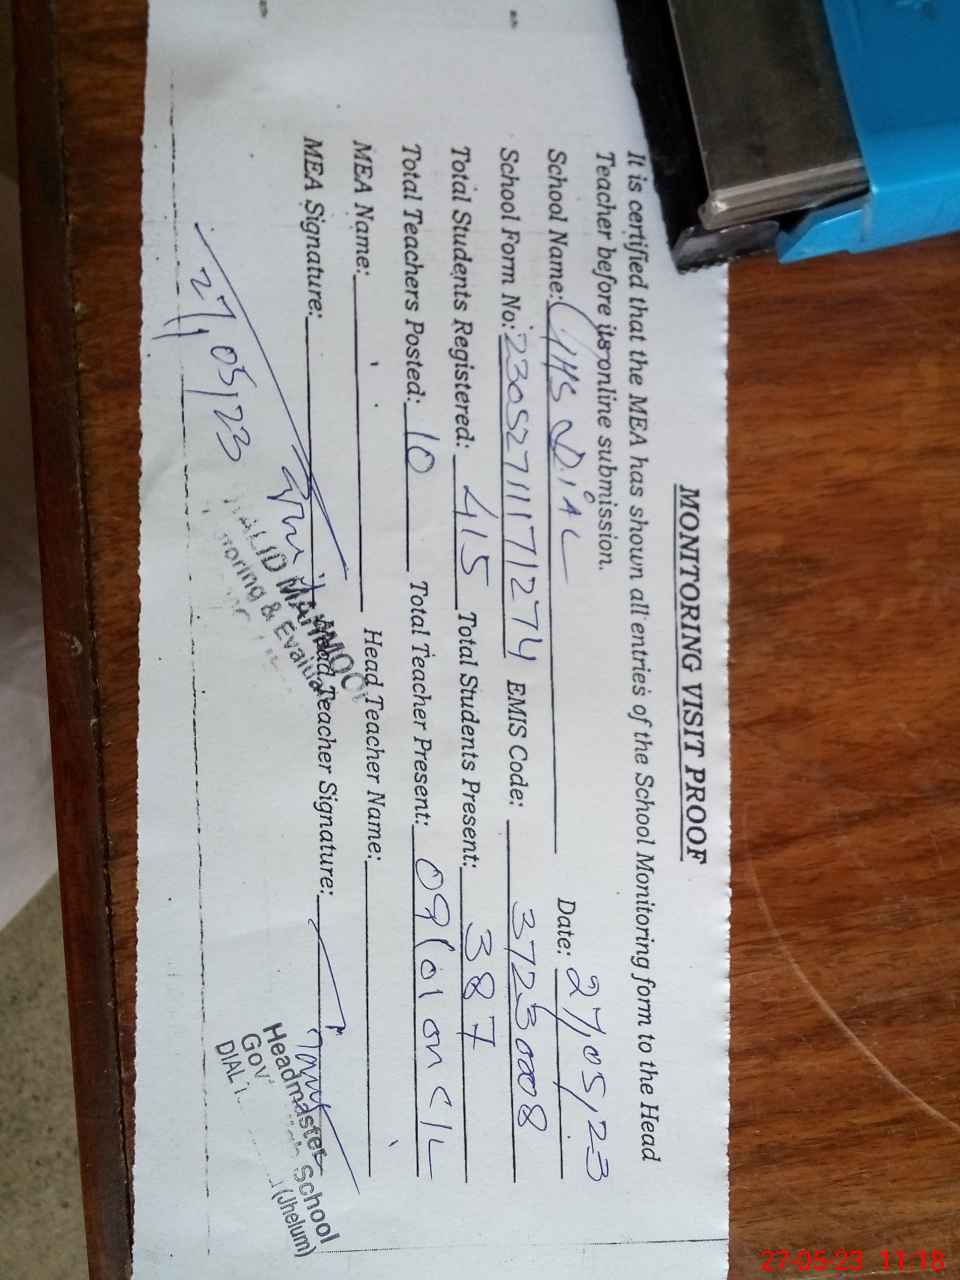 MONITORING VISIT PROOF
It is certified that the MEA has shown all entries of the School Monitoring form to the Head
Teacher before its online submission.
School Name: GHS DiAL Date: 27/05/23
School Form No: 23052711171274 EMIS Code: 37230008
Total Students Registered: 415 Total Students Present: 387
Total Teachers Posted: 10 Total Teacher Present: 09(01 on C/L
MEA Name: Head Teacher Name:
MEA Signature: Head Teacher Signature:
27/05/23
Headmaster
School
DIAL (Jhelum)
27-05-23 11:18